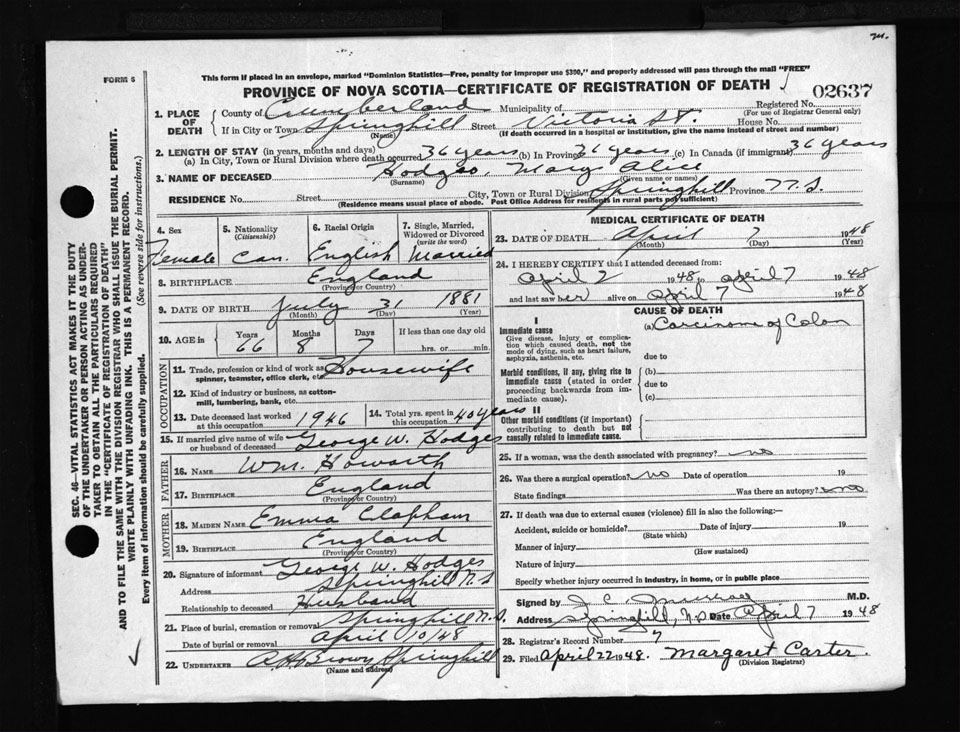 FORM 6
This form if placed in an envelope, marked "Dominion Statistics—Free, penalty for improper use $300," and properly addressed will pass through the mail "FREE"
PROVINCE OF NOVA SCOTIA—CERTIFICATE OF REGISTRATION OF DEATH
02637
1. PLACE OF DEATH County of Cumberland Municipality of Registered No.
(For use of Registrar General only)
If in City or Town Springhill Street Victoria St. House No.
(Name) (If death occurred in a hospital or institution, give the name instead of street and number)
2. LENGTH OF STAY (in years, months and days)
(a) In City, Town or Rural Division where death occurred 36 years (b) In Province 36 years (c) In Canada (if immigrant) 36 years
3. NAME OF DECEASED Hodges, Mary Alice
(Surname) (Given name or names)
RESIDENCE No. Street City, Town or Rural Division Springhill Province N.S.
(Residence means usual place of abode. Post Office Address for residents in rural parts not sufficient)
4. Sex Female
5. Nationality (Citizenship) Can.
6. Racial Origin English
7. Single, Married, Widowed or Divorced (write the word) Married
8. BIRTHPLACE England
(Province or Country)
9. DATE OF BIRTH July 31 1881
(Month) (Day) (Year)
10. AGE in Years 66 Months 8 Days 7 If less than one day old hrs. or min.
OCCUPATION
11. Trade, profession or kind of work as spinner, teamster, office clerk, etc. Housewife
12. Kind of industry or business, as cotton-mill, lumbering, bank, etc.
13. Date deceased last worked at this occupation 1946
14. Total yrs. spent in this occupation 40 years
15. If married give name of wife or husband of deceased George W. Hodges
FATHER
16. NAME Wm. Howarth
17. BIRTHPLACE England
(Province or Country)
MOTHER
18. MAIDEN NAME Emma Clapham
19. BIRTHPLACE England
(Province or Country)
20. Signature of informant George W. Hodges
Address Springhill N.S
Relationship to deceased Husband
21. Place of burial, cremation or removal Springhill N.S.
Date of burial or removal April 10/48
22. UNDERTAKER Brown Springhill
(Name and address)
MEDICAL CERTIFICATE OF DEATH
23. DATE OF DEATH April 7 1948
(Month) (Day) (Year)
24. I HEREBY CERTIFY that I attended deceased from:
April 2 1948 to April 7 1948
and last saw her alive on April 7 1948
CAUSE OF DEATH
I
Immediate cause
Give disease, injury or complication which caused death, not the mode of dying, such as heart failure, asphyxia, asthenia, etc.
(a) Carcinoma of Colon
due to
Morbid conditions, if any, giving rise to immediate cause (stated in order proceeding backwards from immediate cause).
(b)
due to
(c)
II
Other morbid conditions (if important) contributing to death but not causally related to immediate cause.
25. If a woman, was the death associated with pregnancy? no
26. Was there a surgical operation? no Date of operation 19
State findings Was there an autopsy? no
27. If death was due to external causes (violence) fill in also the following:—
Accident, suicide or homicide? Date of injury 19
(State which)
Manner of injury
(How sustained)
Nature of injury
Specify whether injury occurred in industry, in home, or in public place
Signed by J C Murray M.D.
Address Springhill, N.S Date April 7 1948
28. Registrar's Record Number 7
29. Filed April 22 1948. Margaret Carter
(Division Registrar)
SEC. 46—VITAL STATISTICS ACT MAKES IT THE DUTY
OF THE UNDERTAKER OR PERSON ACTING AS UNDER-
TAKER TO OBTAIN ALL THE PARTICULARS REQUIRED
IN THE "CERTIFICATE OF REGISTRATION OF DEATH"
AND TO FILE THE SAME WITH THE DIVISION REGISTRAR WHO SHALL ISSUE THE BURIAL PERMIT.
WRITE PLAINLY WITH UNFADING INK. THIS IS A PERMANENT RECORD.
Every item of information should be carefully supplied. (See reverse side for instructions.)